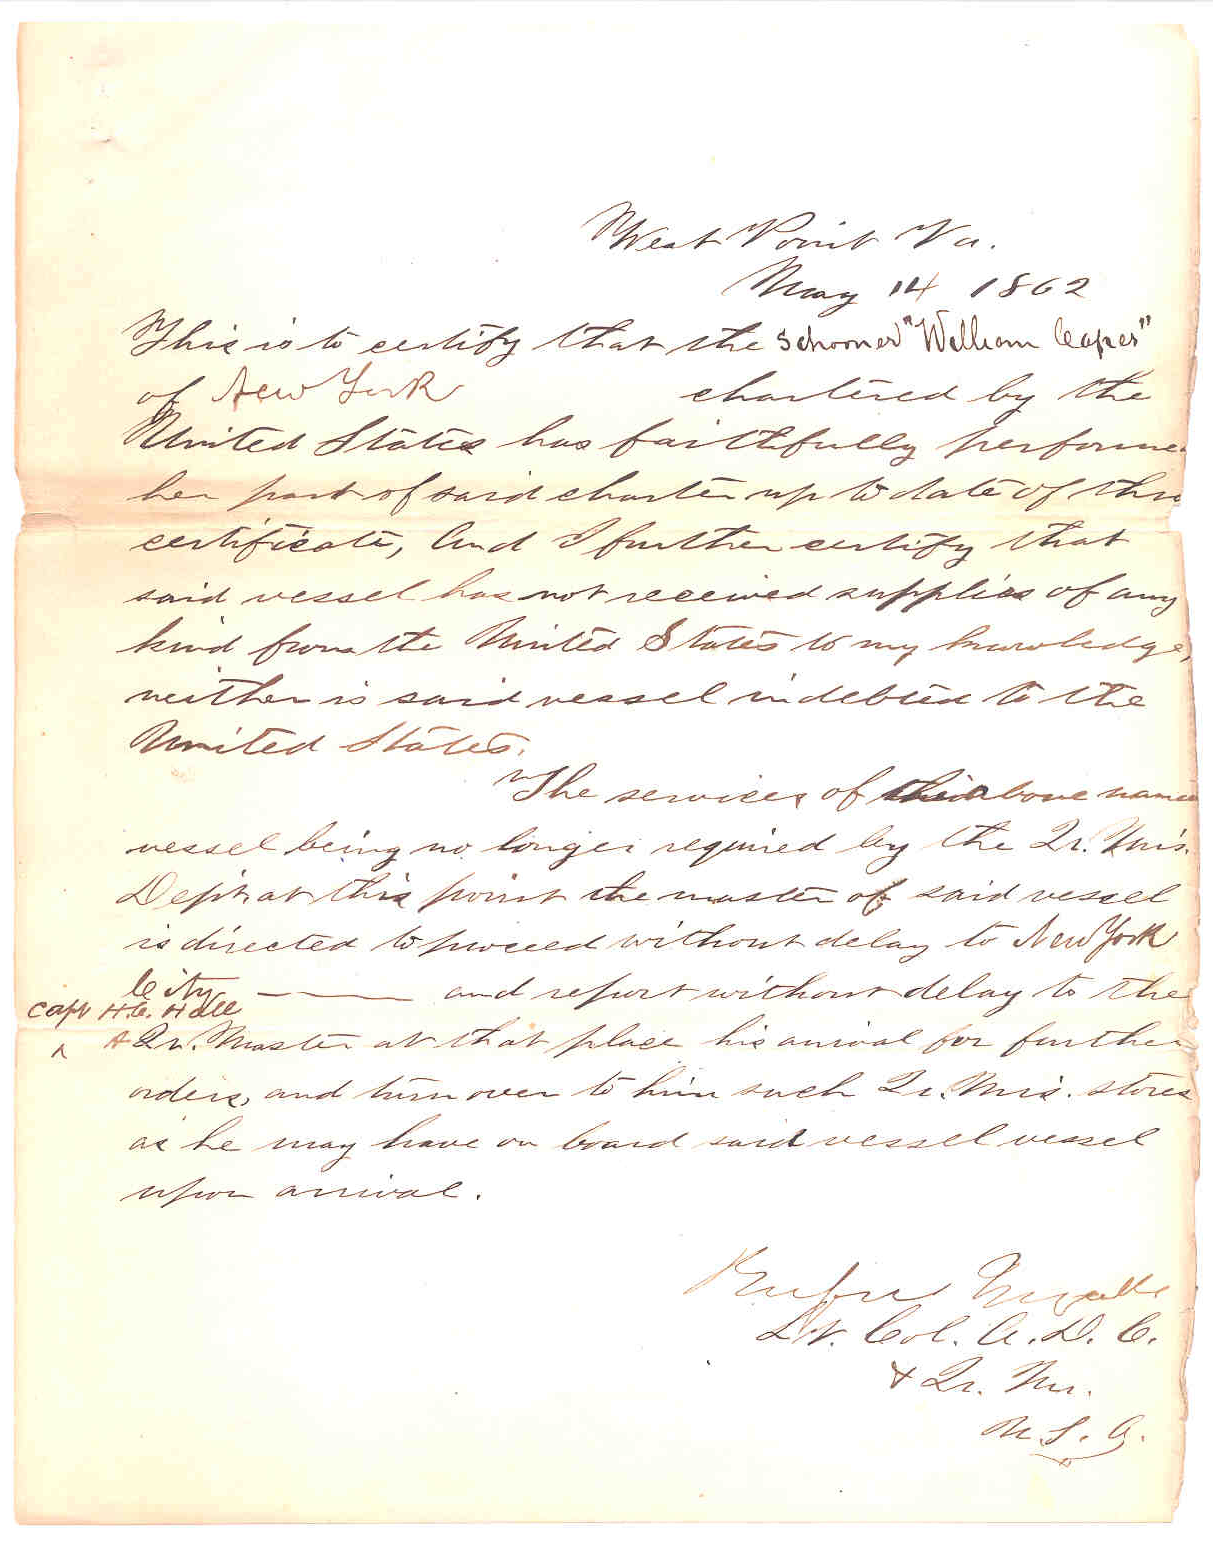 West Point Va.
May 14 1862
This is to certify that the Schooner "William Capes"
of New York chartered by the
United States has faithfully performe
her part of said charter up to date of this
certificate, And I further certify that
said vessel has not received supplies of any
kind from the United States to my knowledge,
neither is said vessel indebted to the
United States.
The services of the above name
vessel being no longer required by the Qr. Mrs.
Dept. at this point the master of said vessel
is directed to proceed without delay to New York
City and report without delay to the
Capt H.C. Hall
A Qr. Master at that place his arival for further
orders, and turn over to him such Qr. Mrs. stores
as he may have on board said vessel vessel
upon arrival.
Rufus Ingalls
Lt. Col. A. D. C.
& Qr. Mr.
U. S. A.